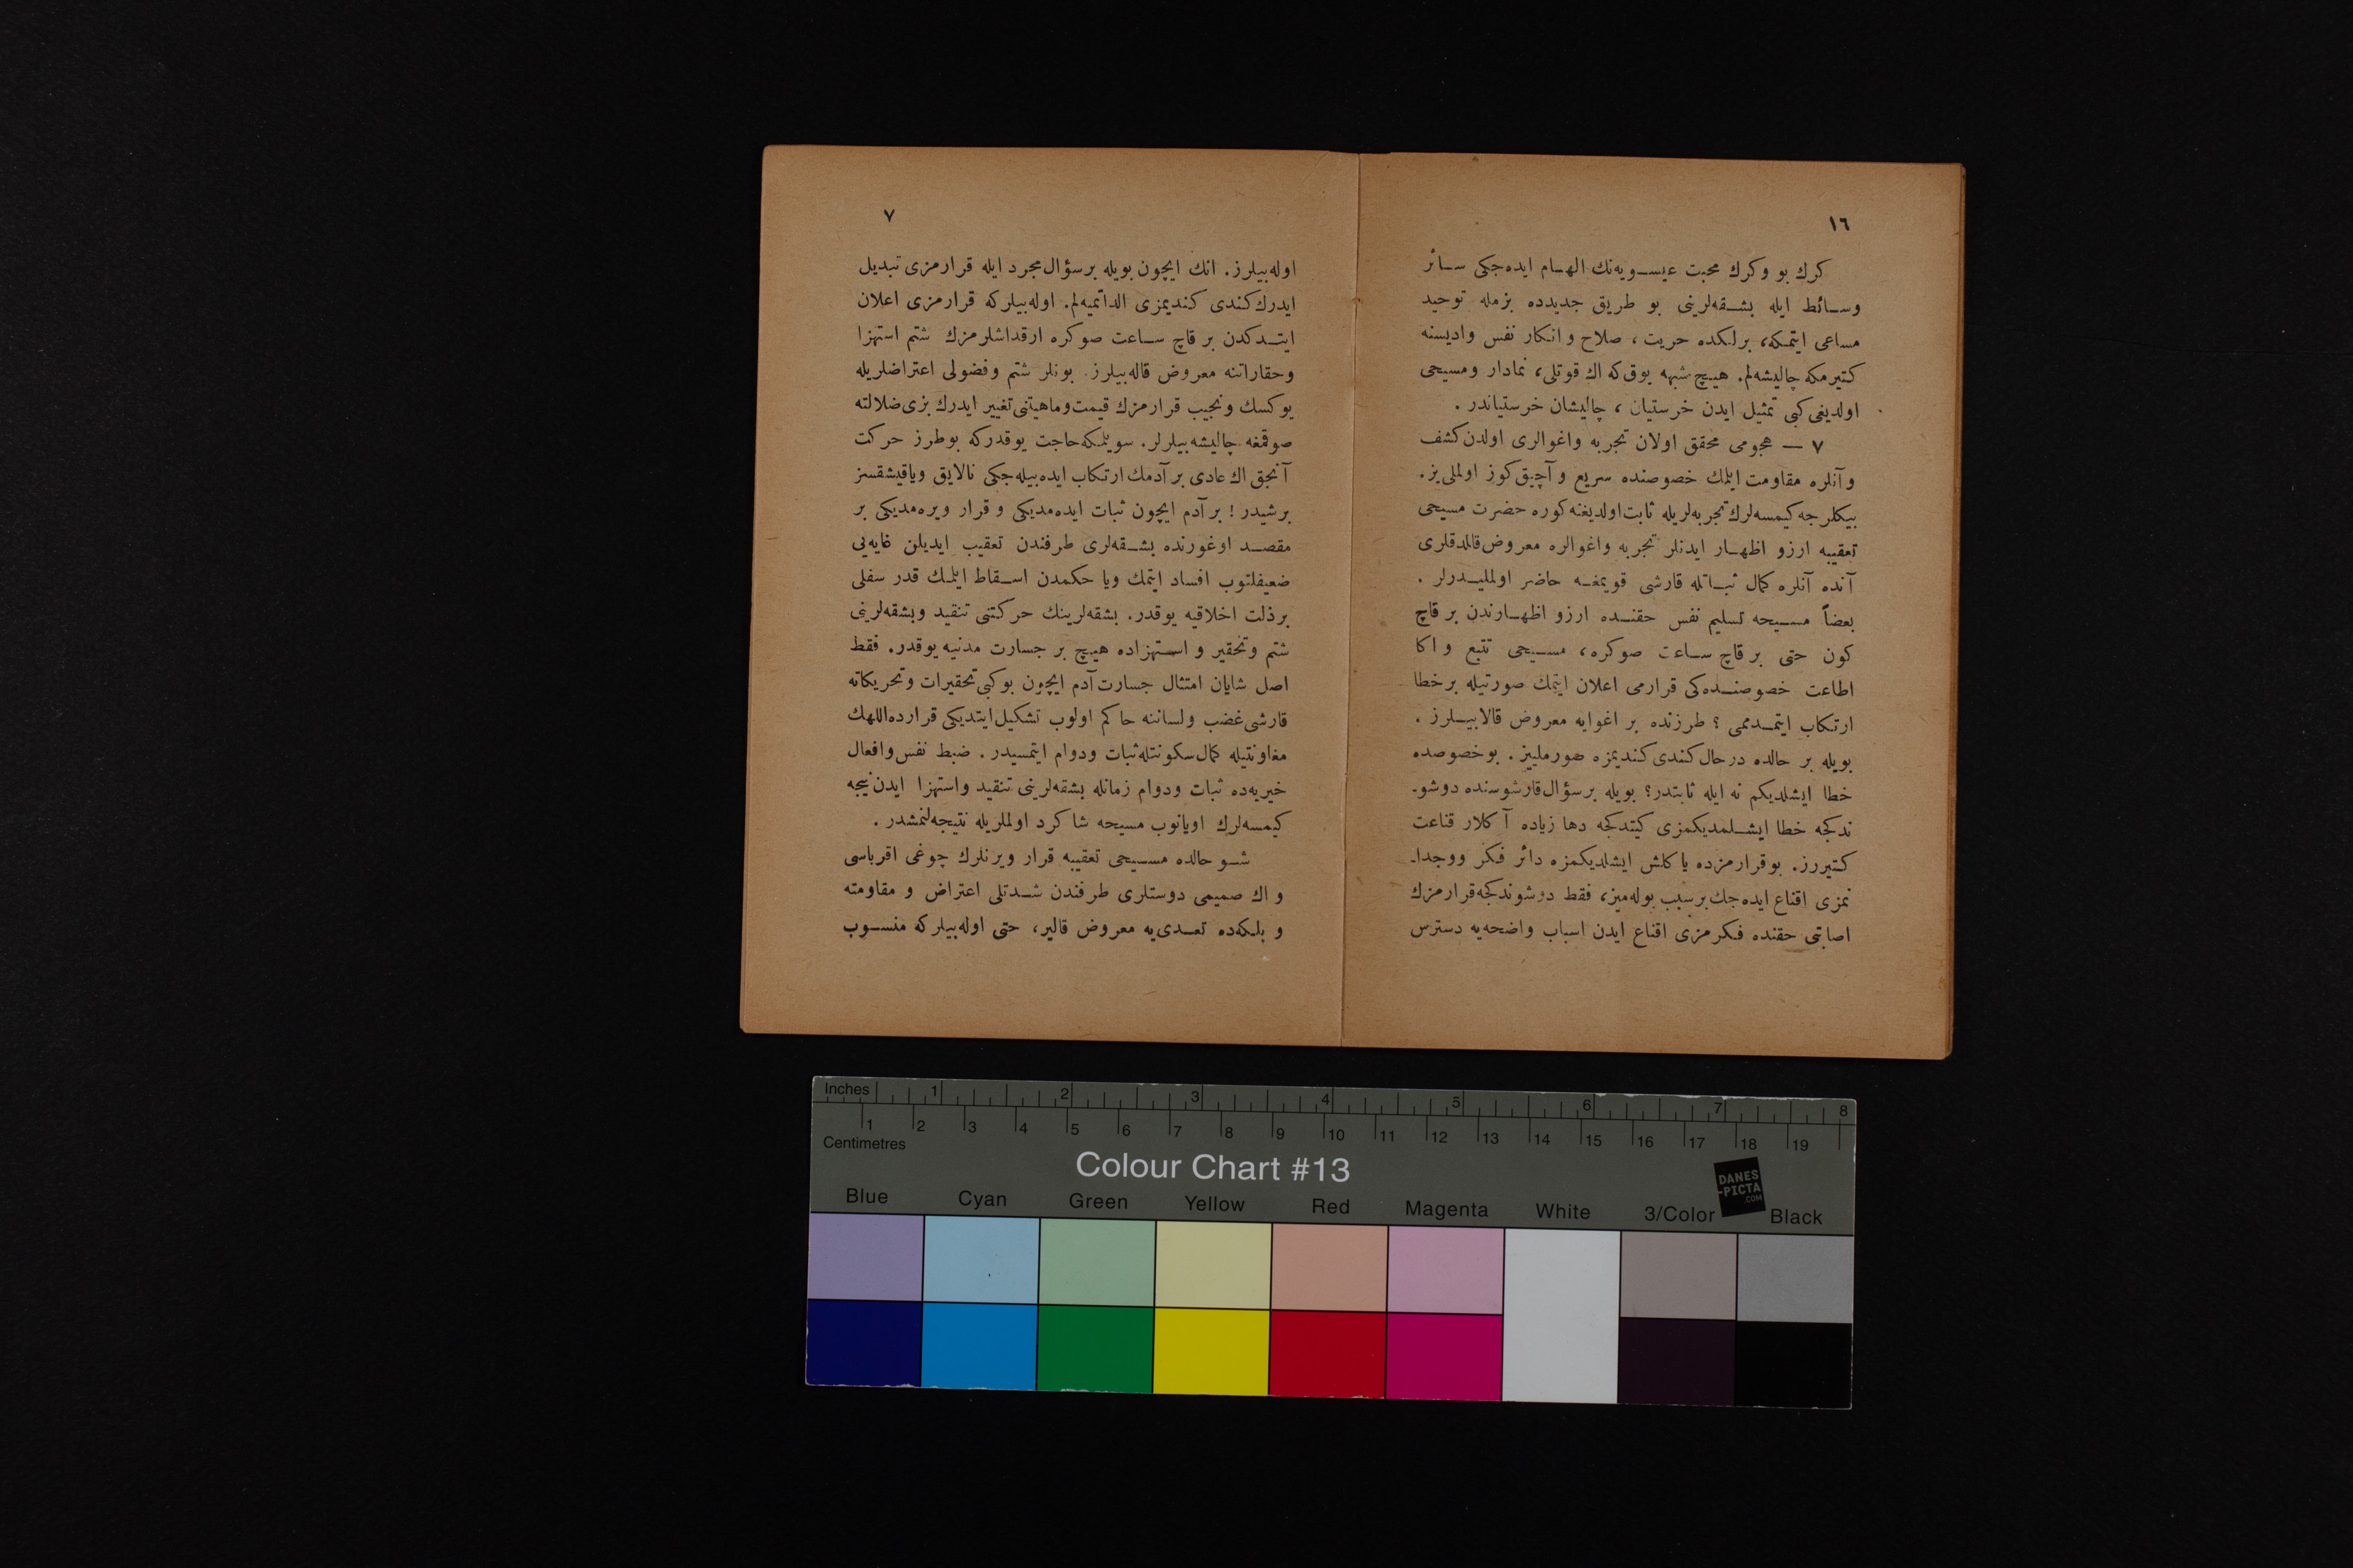 ١٦
كرك بو وكرك محبت عيسـويه‌نك الهـام ايده‌جكى سـائر
وسـائط ايله بشـقه‌لرينى بو طريق جديدده بزمله توحيد
مساعى ايتمكه، برلكده حريت، صلاح وانكار نفس واديسنه
كتيرمكه چاليشه‌لم. هيچ شبهه يوق‌كه اك قوتلى، نمادار ومسيحى
اولديغى كبى تمثيل ايدن خرستيان، چاليشان خرستياندر.
٧ — هجومى محقق اولان تجربه واغوالرى اولدن كشف
وآنلره مقاومت ايلمك خصوصنده سريع و آچيق كوز اولملى يز.
بيكلرجه كيمسه‌لرك تجربه‌لريله ثابت اولديغنه كوره حضرت مسيحى
تعقيبه ارزو اظهـار ايدنلر تجربه واغوالره معروض قالدقلرى
آنده آنلره كمال ثبـاتله قارشى قويمغـه حاضر اولمليـدرلر.
بعضاً مسـيحه تسليم نفس حقنـده ارزو اظهـارندن بر قاچ
كون حتى بر قاچ سـاعت صوكره، مسـيحى تتبع و اكا
اطاعت خصوصنـده‌كى قرارمى اعلان ايتمك صورتيله برخطا
ارتكاب ايتمـدممى؟ طرزنده بر اغوايه معروض قالابيـلرز.
بويله بر حالده درحال كندى كنديمزه صورملييز. بو خصوصده
خطا ايشلديكم نه ايله ثابتدر؟ بويله برسؤال قارشوسنده دوشو-
ندكجه خطا ايشـلمديكمزى كيتدكجه دها زياده آكلار قناعت
كتيررز. بو قرارمزده ياكلش ايشلديكمزه دائر فكر ووجدا-
نمزى اقناع ايده‌جك برسبب بوله‌ميز، فقط دوشوندكجه قرارمزك
اصابتى حقنده فكرمزى اقناع ايدن اسباب واضحه‌يه دسترس
٧
اوله‌بيلرز. انك ايچون بويله برسؤال مجرد ايله قرارمزى تبديل
ايدرك كندى كنديمزى الداتميه‌لم. اوله‌بيلركه قرارمزى اعلان
ايتـدكدن بر قاچ سـاعت صوكره ارقداشلرمزك شتم استهزا
وحقاراتنه معروض قاله‌بيلرز. بونلر شتم وفضولى اعتراضلريله
يوكسك ونجيب قرارمزك قيمت وماهيتنى تغيير ايدرك بزى ضلالته
صوقمغه چاليشه‌بيلرلر. سويلمكه حاجت يوقدركه بوطرز حركت
آنجق اك عادى بر آدمك ارتكاب ايده‌بيله‌جكى نالايق وياقيشقسز
برشيدر! بر آدم ايچون ثبات ايده‌مديكى و قرار ويره‌مديكى بر
مقصـد اوغورنده بشـقه‌لرى طرفندن تعقيب ايديلن غايه‌يى
ضعيفلتوب افساد ايتمك ويا حكمدن اسـقاط ايلمك قدر سفلى
برذلت اخلاقيه يوقدر. بشقه‌لرينك حركتنى تنقيد وبشقه‌لرينى
شتم وتحقير و اسـتهزاده هيچ بر جسارت مدنيه يوقدر. فقط
اصل شايان امتثال جسارت آدم ايچون بوكبى تحقيرات وتحريكاته
قارشى غضب ولساننه حاكم اولوب تشكيل ايتديكى قرارده اللهك
معاونتيله كمال سكونتله ثبات ودوام ايتمسيدر. ضبط نفس وافعال
خيريه‌ده ثبات ودوام زمانله بشقه‌لرينى تنقيد واستهزا ايدن نيجه
كيمسه‌لرك اويانوب مسيحه شاكرد اولملريله نتيجه‌لنمشدر.
شـو حالده مسـيحى تعقيبه قرار ويرنلرك چوغى اقرباسى
و اك صميمى دوستلرى طرفندن شـدتلى اعتراض و مقاومته
و بلكه‌ده تعـدى‌يه معروض قالير، حتى اوله‌بيلركه منسـوب
Inches 1 2 3 4 5 6 7 8
1 2 3 4 5 6 7 8 9 10 11 12 13 14 15 16 17 18 19
Centimetres
Colour Chart #13
DANES
-PICTA
.COM
Blue Cyan Green Yellow Red Magenta White 3/Color Black